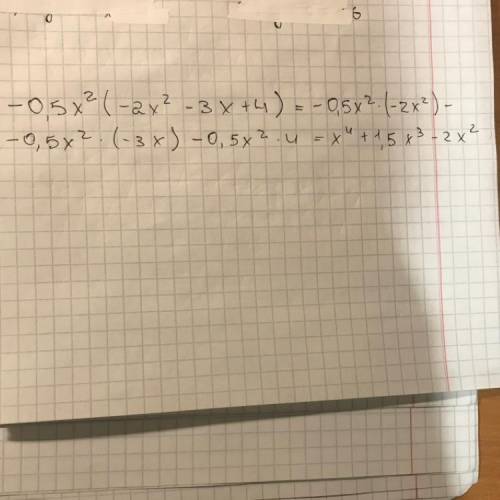 -0,5x² ( -2x² - 3x + 4 ) = -0,5x² · (-2x²) -
-0,5x² · (-3x) - 0,5x² · 4 = x⁴ + 1,5x³ - 2x²